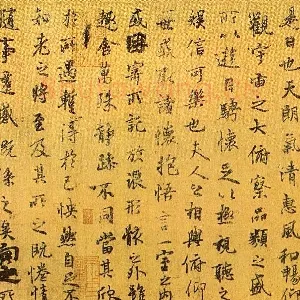 是日也天朗氣清惠風
觀宇宙之大俯察品類之盛
所以遊目騁懷足以極視聽之
娛信可樂也夫人之相與俯仰
世或取諸懷抱悟言一室之內
或因寄所託放浪形骸之外雖
趣舍萬殊靜躁不同當其欣
於所遇暫得於己怏然自足不
知老之將至及其所之既惓情
隨事遷感慨係之矣向之